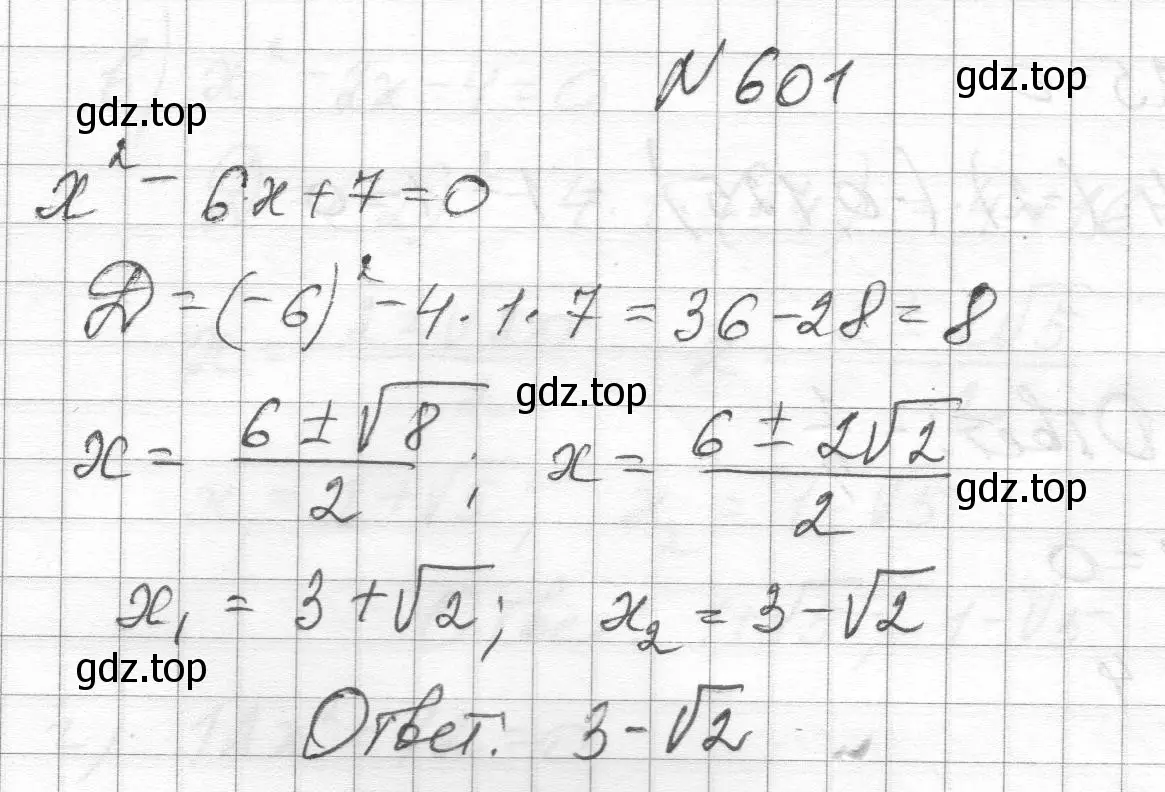 N 601
gdz.top
gdz.top
x² - 6x + 7 = 0
D = (-6)² - 4 · 1 · 7 = 36 - 28 = 8
gdz.top
x = (6 ± √8)/2 ; x = (6 ± 2√2)/2
gdz.top
x₁ = 3 + √2 ; x₂ = 3 - √2
gdz.top
Ответ. 3 - √2